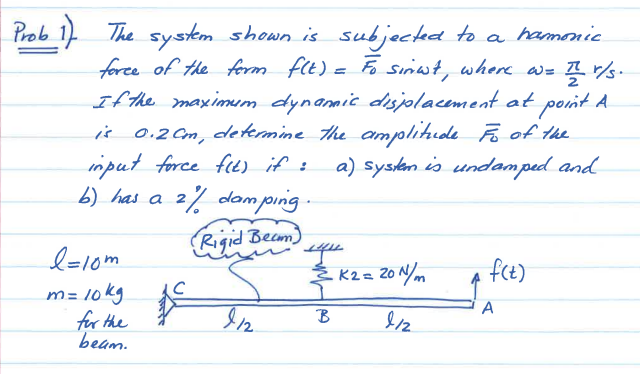 Prob 1) The system shown is subjected to a harmonic
force of the form f(t) = F̄₀ sin ωt, where ω = π/2 r/s.
If the maximum dynamic displacement at point A
is 0.2 cm, determine the amplitude F̄₀ of the
input force f(t) if : a) system is undamped and
b) has a 2% damping.
Rigid Beam
l = 10 m
K2 = 20 N/m
f(t)
m = 10 kg
C
for the
beam.
l/2
B
l/2
A